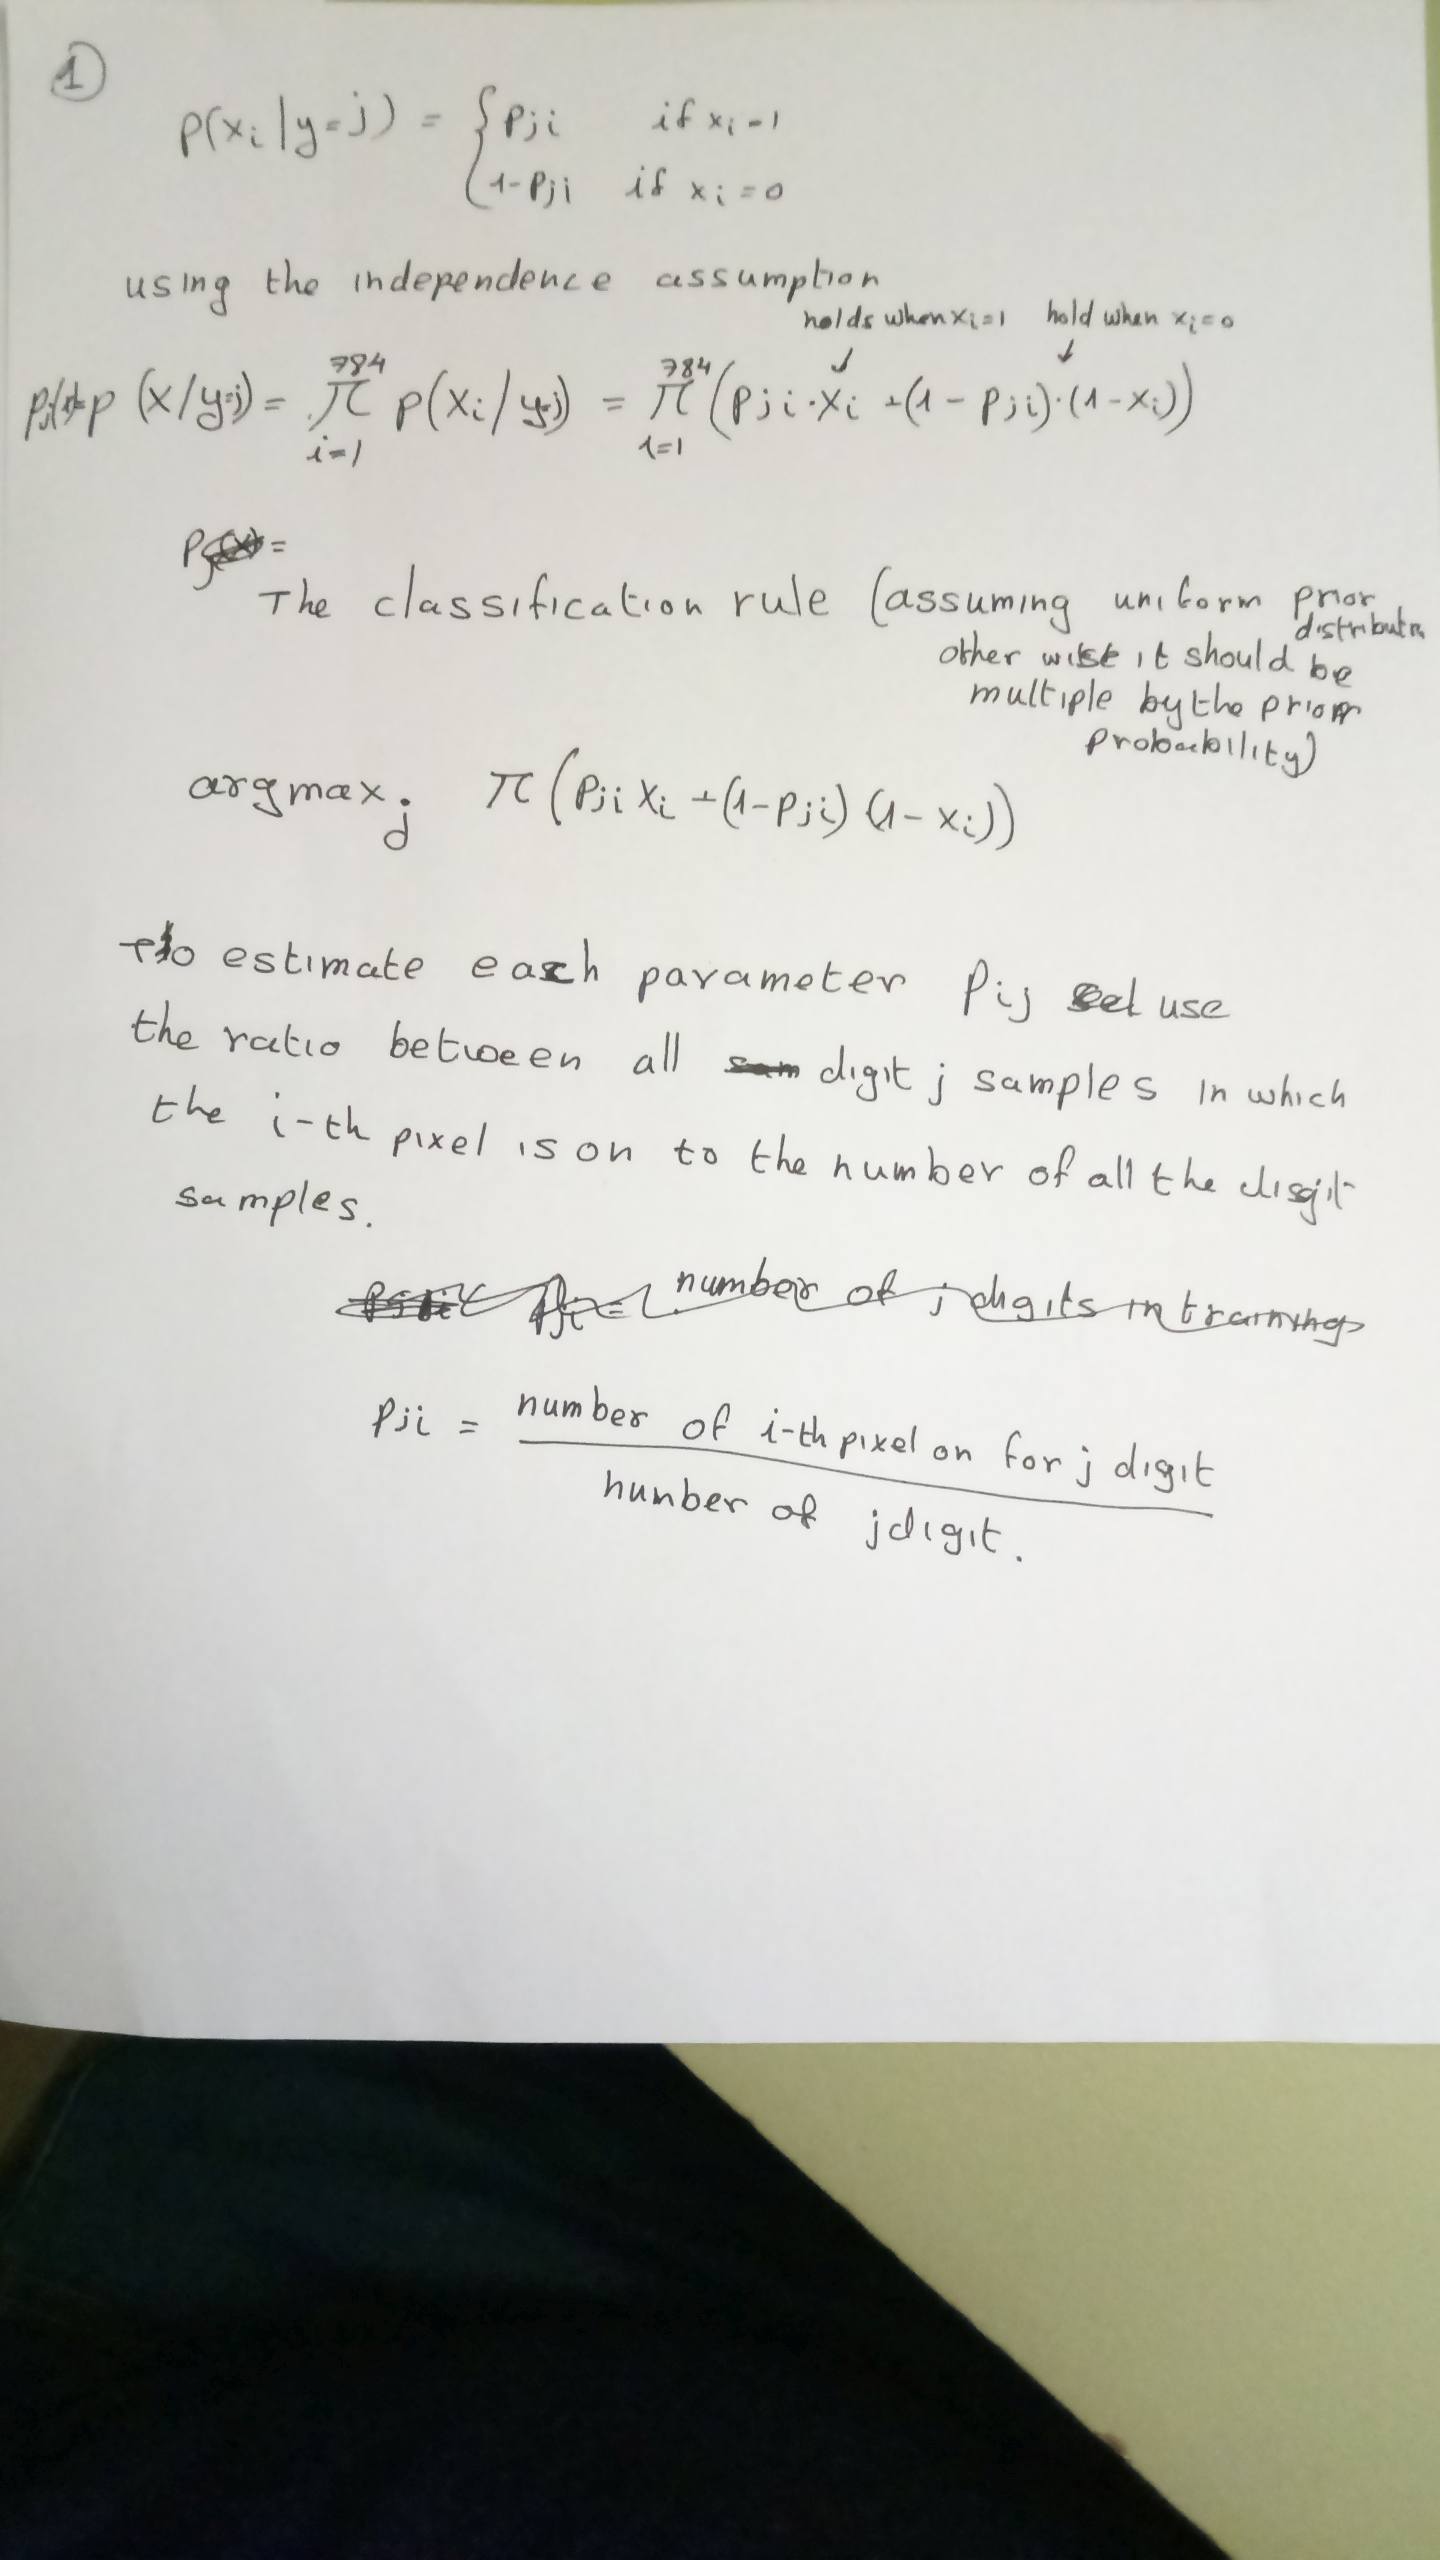 1
p(xi|y=j) = { Pji if xi=1
1-Pji if xi=0
using the independence assumption
holds when xi=1 hold when xi=0
p(x/y=j) = π p(xi/y=j) = π (Pji·xi+(1-Pji)·(1-xi))
784 784
i=1 i=1
P =
The classification rule (assuming uniform prior
distributn
other wise it should be
multiple by the prior
probability)
argmaxj π(Pji xi+(1-Pji)(1-xi))
to estimate each parameter Pij use
the ratio between all digit j samples in which
the i-th pixel is on to the number of all the digit
samples.
Pji = number of j digits in training
Pji = number of i-th pixel on for j digit
number of j digit.